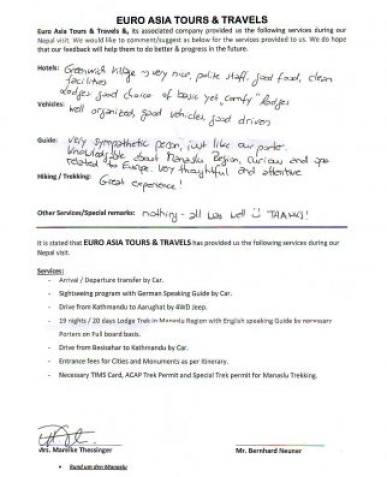 EURO ASIA TOURS & TRAVELS
Euro Asia Tours & Travels &, its associated company provided us the following services during our
Nepal visit. We would like to comment/suggest as below for the services provided to us. We do hope
that our feedback will help them to do better & progress in the future.
Hotels: Greenwich Village → very nice, polite staff, good food, clean
facilities
Lodges good choice of basic yet "comfy" lodges
Vehicles: well organized, good vehicles, good drivers
Guide: very sympathetic person, just like our porter.
knowledgable about Manaslu Region, curious and
related to Europe. Very thoughtful and attentive
Hiking / Trekking: Great experience!
Other Services/Special remarks: nothing - all was well ☺ THANKS!
It is stated that EURO ASIA TOURS & TRAVELS has provided us the following services during our
Nepal visit.
Services:
- Arrival / Departure transfer by Car.
- Sightseeing program with German Speaking Guide by Car.
- Drive from Kathmandu to Aarughat by 4WD Jeep.
- 19 nights / 20 days Lodge Trek in Manaslu Region with English speaking Guide by necessary
Porters on Full board basis.
- Drive from Besisahar to Kathmandu by Car.
- Entrance fees for Cities and Monuments as per Itinerary.
- Necessary TIMS Card, ACAP Trek Permit and Special Trek permit for Manaslu Trekking.
Mrs. Mareike Thessinger
Mr. Bernhard Neuner
• Rund um den Manaslu